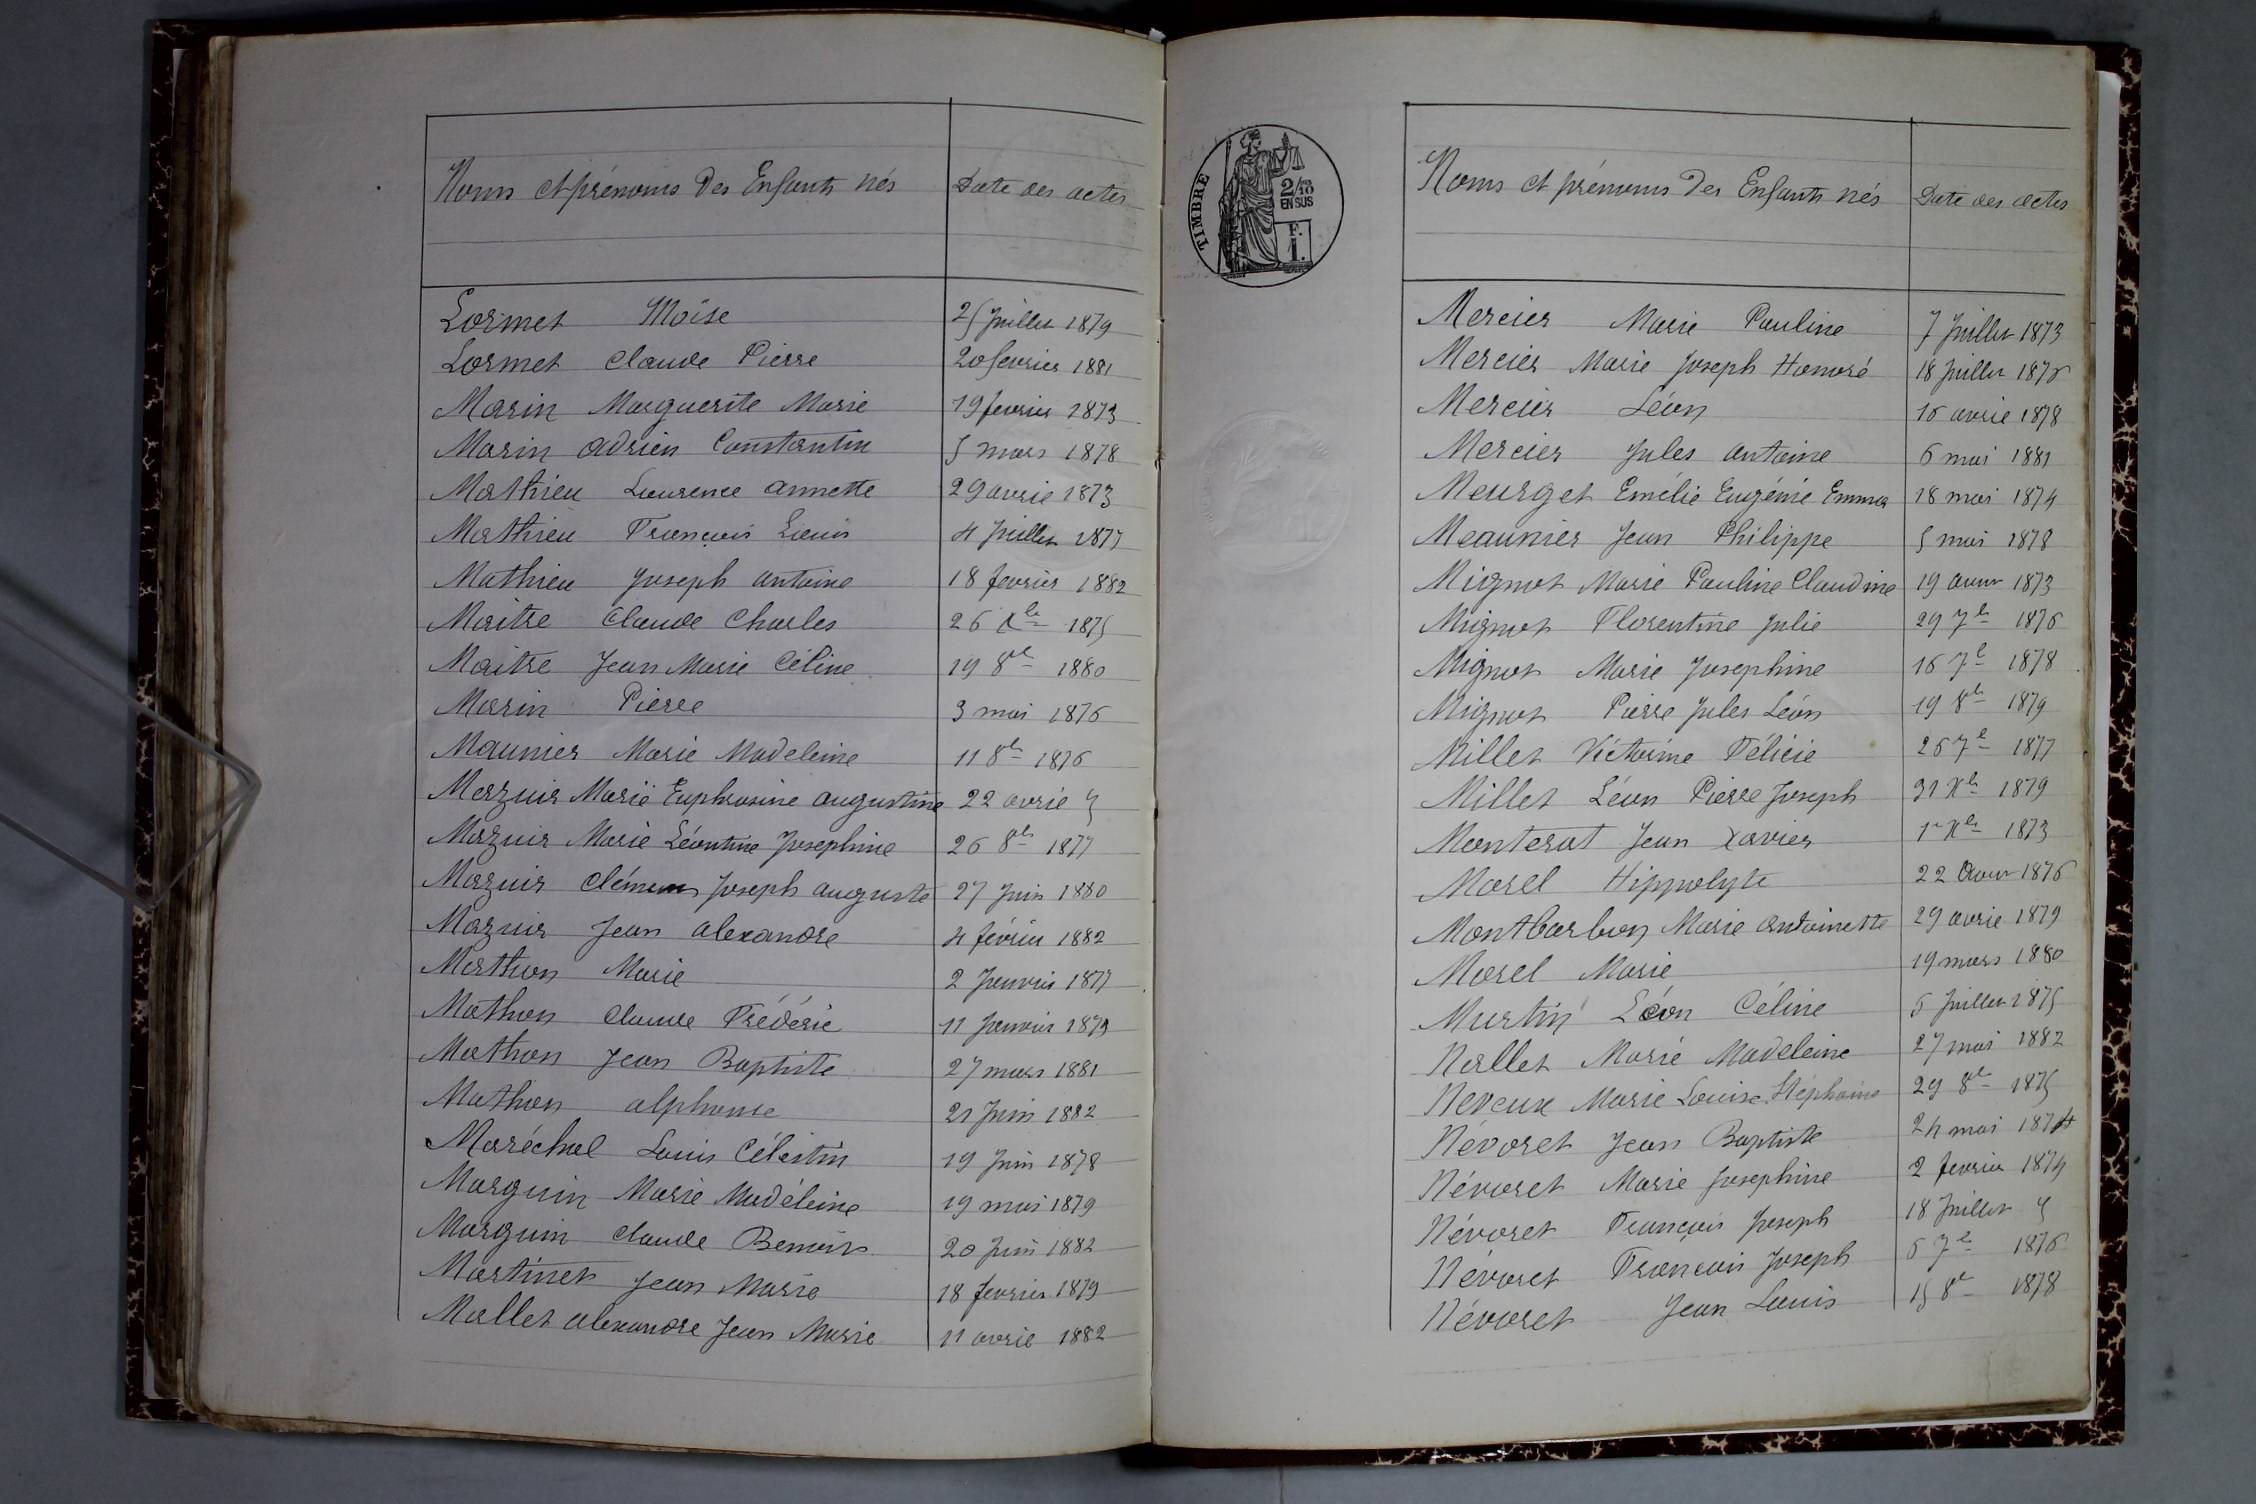 Noms et prénoms des Enfants nés Date des actes
Lormet Moïse 25 Juillet 1879
Lormet Claude Pierre 20 fevrier 1881
Marin Marguerite Marie 19 fevrier 1873
Marin Adrien Constantin 5 mars 1878
Mathieu Laurence annette 29 avril 1873
Mathieu François Louis 4 Juillet 1877
Mathieu Joseph antoine 18 fevrier 1882
Maitre Claude Charles 26 Xbre 1875
Maitre Jean Marie Céline 19 8bre 1880
Marin Pierre 3 mai 1876
Maunier Marie Madeleine 11 8bre 1876
Mazuir Marie Euphrosine augustine 22 avril
Mazuir Marie Léontine Josephine 26 8bre 1877
Mazuir Clément Joseph auguste 27 Juin 1880
Mazuir Jean alexandre 4 février 1882
Mathon Marie 2 Janvier 1877
Mathon Claude Fréderic 11 Janvier 1879
Mathon Jean Baptiste 27 mars 1881
Mathon alphonse 21 Juin 1882
Maréchal Louis Célestin 19 Juin 1878
Marguin Marie Madéleine 19 mai 1879
Marguin Claude Benoit 20 Juin 1882
Martinet Jean Marie 18 fevrier 1879
Mallet alexandre Jean Marie 11 avril 1882
TIMBRE
2/10
EN SUS
F.
1.
Noms et prénoms des Enfants nés Date des actes
Mercier Marie Pauline 7 Juillet 1873
Mercier Marie Joseph Honoré 18 Juillet 1876
Mercier Léon 16 avril 1878
Mercier Jules antoine 6 mai 1881
Meurget Emélie Eugénie Emma 18 mai 1874
Meaunier Jean Philippe 5 mai 1878
Mignot Marie Pauline Claudine 19 aout 1873
Mignot Florentine Julie 29 7bre 1876
Mignot Marie Josephine 16 7bre 1878
Mignot Pierre Jules Léon 19 8bre 1879
Millet Victorine Félicie 26 7bre 1877
Millet Léon Pierre Joseph 31 Xbre 1879
Monterat Jean Xavier 1er Xbre 1873
Morel Hippolyte 22 Aout 1876
Montbarbon Marie Antoinette 29 avril 1879
Morel Marie 19 mars 1880
Murtin Léon Céline 6 Juillet 1875
Nallet Marie Madeleine 27 mai 1882
Neveux Marie Louise Stéphanie 29 8bre 1875
Névoret Jean Baptiste 24 mai 1874
Névoret Marie Josephine 2 fevrier 1874
Névoret François Joseph 18 Juillet
Névoret François Joseph 6 7bre 1876
Névoret Jean Louis 15 8bre 1878